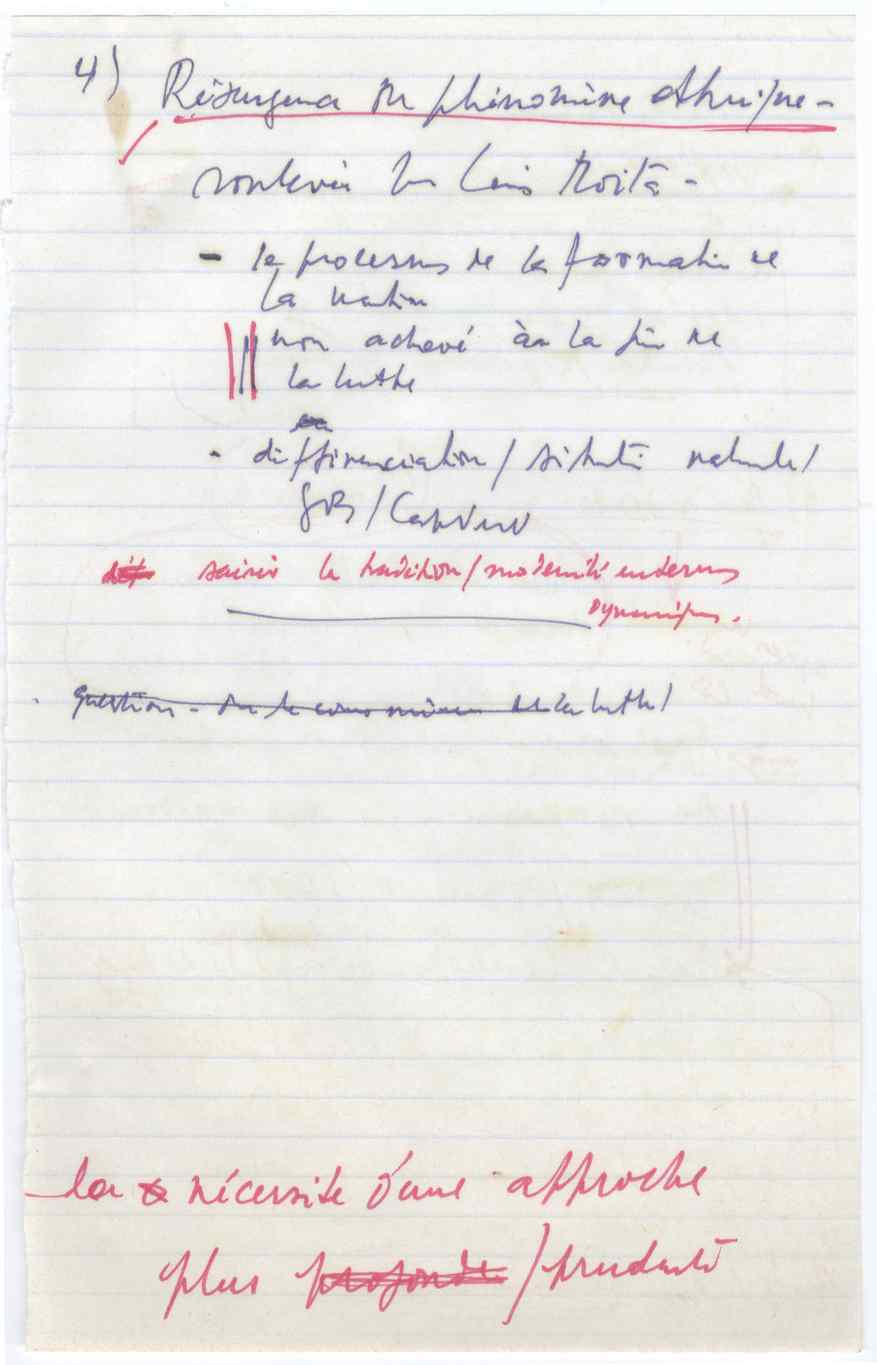 4) Résurgence du phénomène ethnique -
soulevée
- le processus de la formation de
la nation
non achevé à la fin de
la lutte
- différenciation / situation nationale /
GB / Cap Vert
saisir la tradition / modernité
dynamiques.
Question - de la lutte /
la nécessité d'une approche
plus profonde / prudente